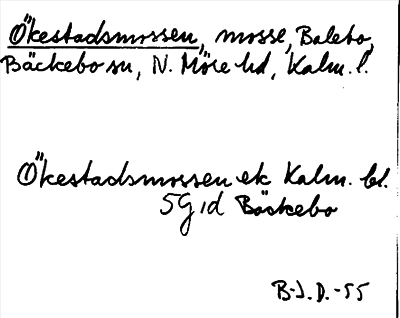 Ökestadsmossen, mosse, Balebo,
Bäckebo sn, N. Möre hd, Kalm. l.
Ökestadsmossen ek Kalm. bl.
5G 1d Bäckebo
B-J.D.-55